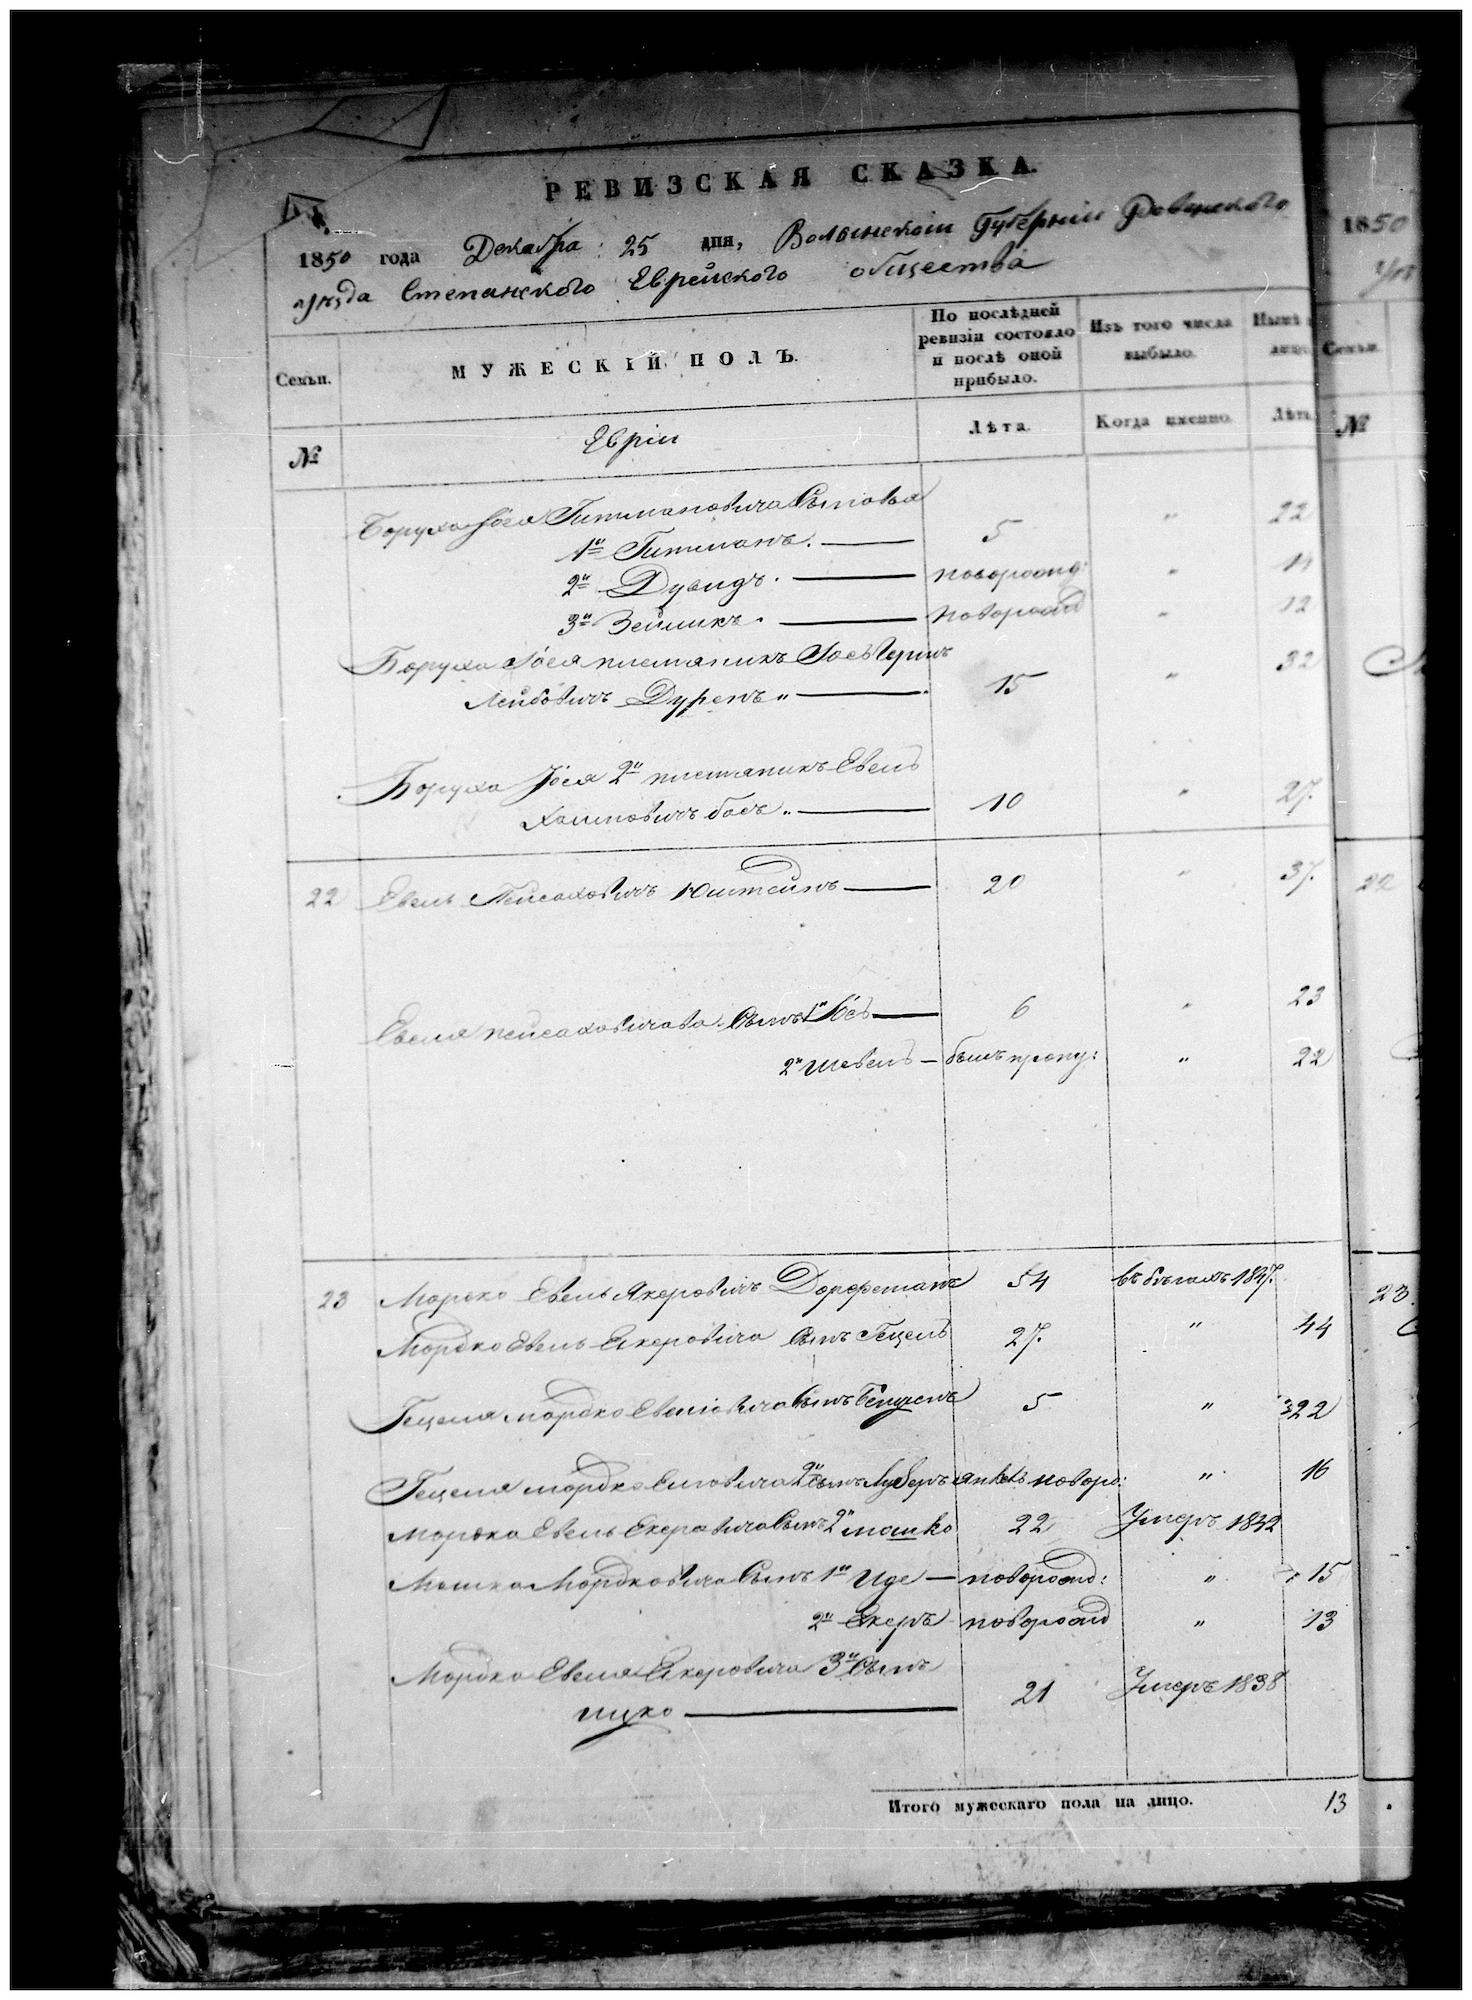 РЕВИЗСКАЯ СКАЗКА.
1850 года Декабря 25 дня, Волынской Губернии Ровенского
уѣзда Степанского Еврейского общества
Семьи.
МУЖЕСКІЙ ПОЛЪ.
По послѣдней ревизіи состояло и послѣ оной прибыло.
Изъ того числа выбыло.
Нынѣ
лицо
№
Евріи
Лѣта.
Когда именно.
Лѣта.
Боруха Іося Гитмановича Сыновья
1й Гитманъ. 5 " 22
2й Дувидъ. новорожд: "
3й Зейликъ. новорожд " 12
Боруха Іося племяникъ Іось Гершъ " 32
Лейбовичъ Дуренъ " 15
Боруха Іося 2й племяникъ Евель
Хаимовичъ басъ " 10 " 27.
22 Евель Пейсаховичъ Юштейнъ 20 " 37.
Евеля пейсаховича Сынъ 1й Іось 6 " 23
2й Шевель былъ пропу: " 22
23 Мордко Евель Якеровичъ Дорфманъ 54 въ бѣгахъ 1847.
Мордко Евель Екеровича Сынъ Гецель 27. " 44
Гецеля мордко Евеловича Сынъ 5 " 22
Гецеля мордко Евеловича 2й сынъ янкель новоро: " 16
Мордко Евель Екеровича Сынъ 2й мошко 22 Умеръ 1842
Мошка Мордковича Сынъ 1й Иде новорожд: " 15
2й Екеръ новорожд " 13
Мордко Евеля Екеровича 3й Сынъ
ицко 21 Умеръ 1838
Итого мужескаго пола на лицо. 13
1850
Семьи.
№
22
23